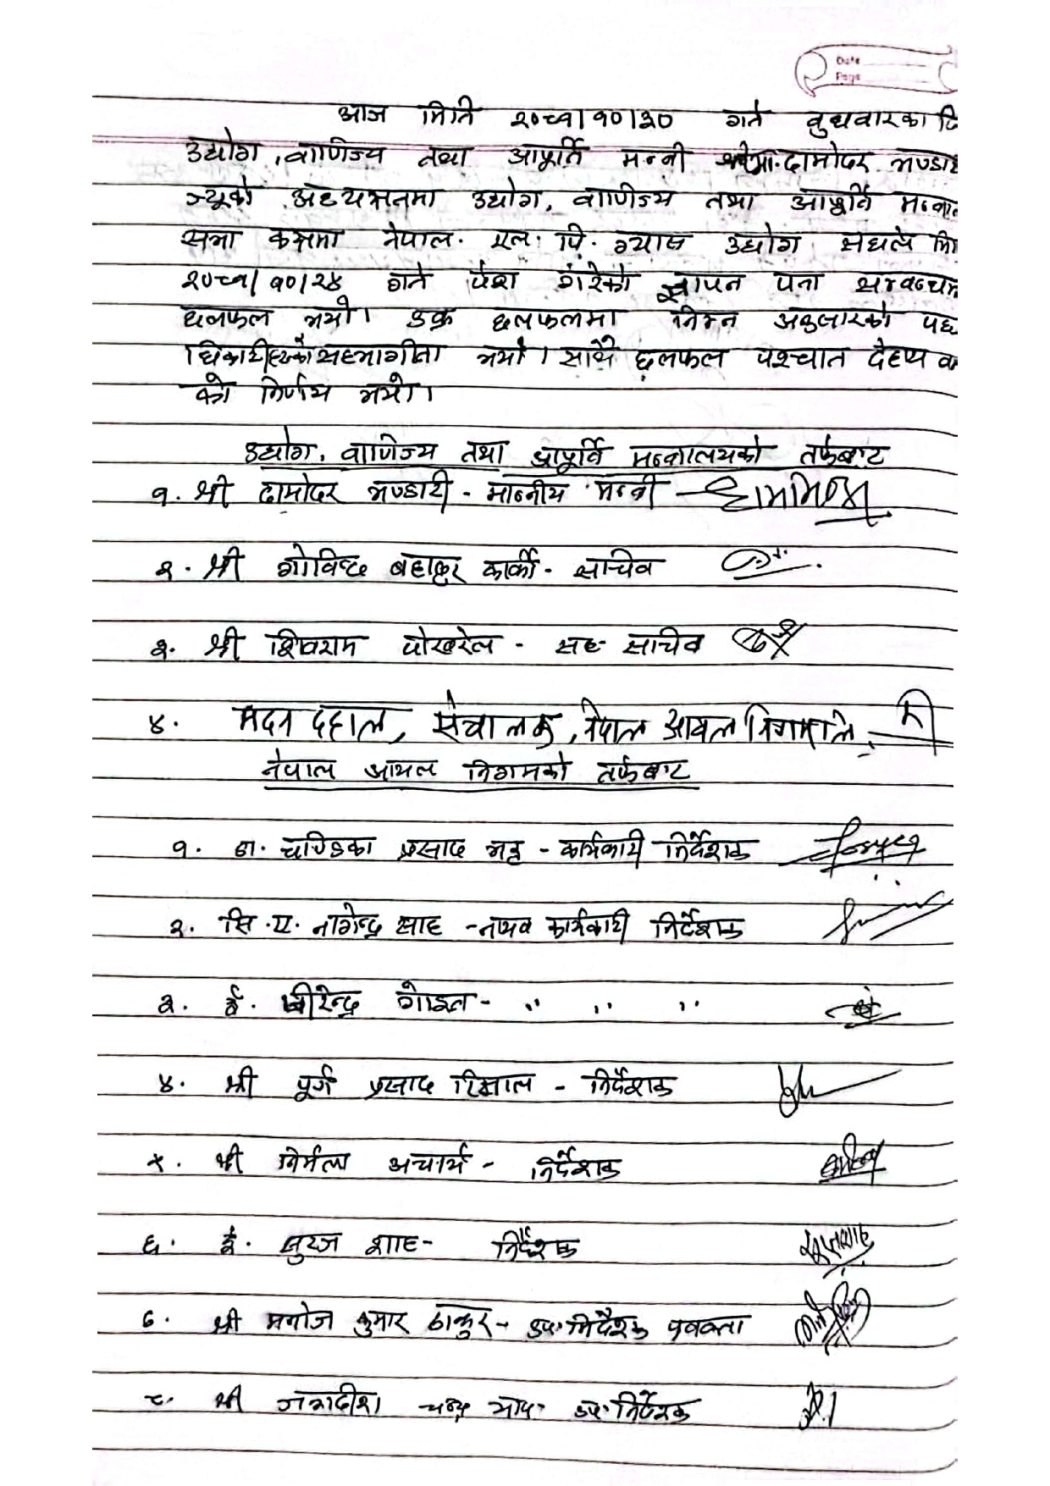 Date
Page
आज मिति २०८१/१०/३० गते बुधवारका दि
उद्योग, वाणिज्य तथा आपूर्ति मन्त्री श्री मा. दामोदर भण्डारी
ज्यूको अध्यक्षतामा उद्योग, वाणिज्य तथा आपूर्ति मन्त्राल
सभा कक्षमा नेपाल एल. पि. ग्यास उद्योग संघले मि
२०८१/१०/२४ गते पेश गरेको ज्ञापन पत्र सम्बन्धमा
छलफल भयो। उक्त छलफलमा निम्न अनुसारको पदा
धिकारीहरुको सहभागीता भयो। साथै छलफल पश्चात देहाय व
को निर्णय भयो।
उद्योग, वाणिज्य तथा आपूर्ति मन्त्रालयको तर्फबाट
१. श्री दामोदर भण्डारी - माननीय मन्त्री
२. श्री गोविन्द बहादुर कार्की - सचिव
३. श्री शिवराम पोखरेल - सह सचिव
४. मदन दहाल, संचालक, नेपाल आयल निगम लि.
नेपाल आयल निगमको तर्फबाट
१. डा. चण्डिका प्रसाद भट्ट - कार्यकारी निर्देशक
२. सि. ए. नागेन्द्र साह - नायव कार्यकारी निर्देशक
३. ई. बीरेन्द्र गोइत - " " "
४. श्री पूर्ण प्रसाद रिमाल - निर्देशक
५. श्री निर्मला अचार्य - निर्देशक
६. ई. सुरज शाह - निर्देशक
७. श्री मनोज कुमार ठाकुर - उप-निर्देशक प्रवक्ता
८. श्री जगदीश चन्द्र उप-निर्देशक